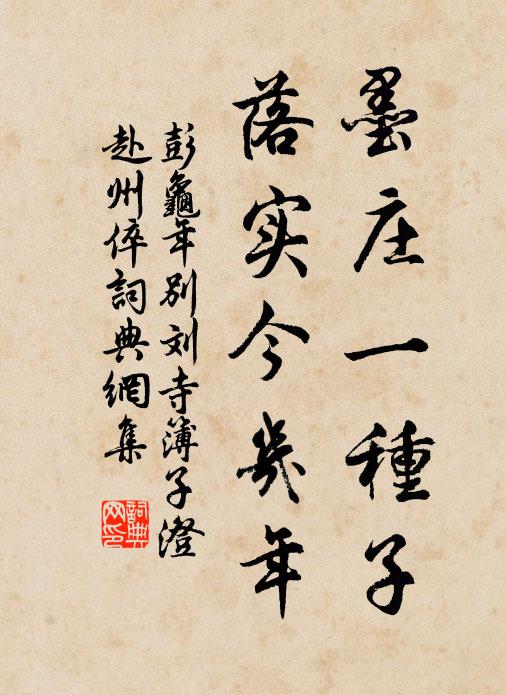 墨庄一種子
落实今幾年
彭龜年别刘寺簿子澄
赴州倅詞典網集
詞典网印